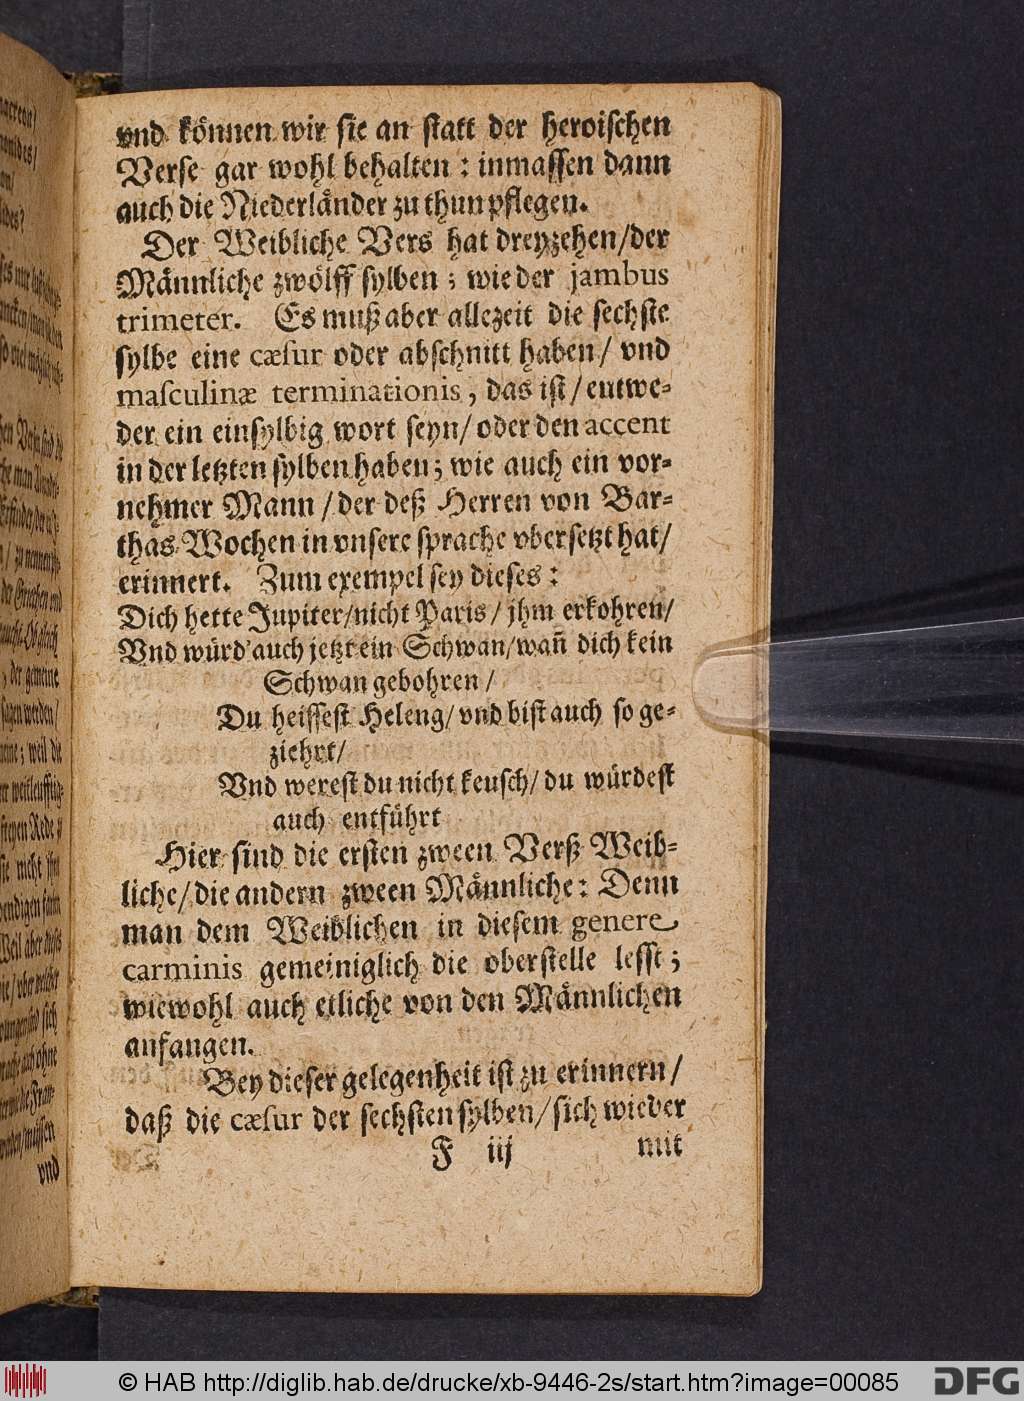 vnd können wir sie an statt der heroischen
Verse gar wohl behalten : inmassen dann
auch die Niederländer zu thun pflegen.
Der Weibliche Vers hat dreyzehen/der
Männliche zwölff sylben ; wie der jambus
trimeter. Es muß aber allezeit die sechste
sylbe eine cæsur oder abschnitt haben/ vnd
masculinæ terminationis, das ist/ entwe-
der ein einsylbig wort seyn/ oder den accent
in der letzten sylben haben; wie auch ein vor-
nehmer Mann / der deß Herren von Bar-
thas Wochen in vnsere sprache vbersetzt hat/
erinnert. Zum exempel sey dieses :
Dich hette Jupiter/nicht Paris/ jhm erkohren/
Vnd würd' auch jetzt ein Schwan/wañ dich kein
Schwan gebohren /
Du heissest Heleng/ vnd bist auch so ge-
ziehrt/
Vnd werest du nicht keusch/ du würdest
auch entführt
Hier sind die ersten zween Verß Weib-
liche/ die andern zween Männliche: Denn
man dem Weiblichen in diesem genere
carminis gemeiniglich die oberstelle lesst;
wiewohl auch etliche von den Männlichen
anfangen.
Bey dieser gelegenheit ist zu erinnern/
daß die cæsur der sechsten sylben/ sich wieder
F iij mit
vnd
© HAB http://diglib.hab.de/drucke/xb-9446-2s/start.htm?image=00085
DFG